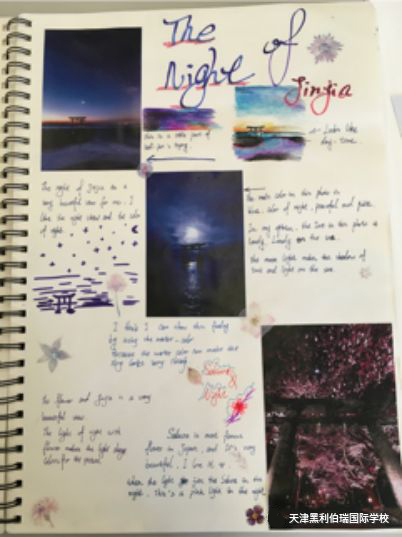 The
Night of
Jinjia
this is a little part of
Looks like
day-time.
The night of Jinjia is a
very beautiful view for me. I
like the night view and the color
of night.
The main color in this photo is
blue. color of night. peaceful and
In my opinion, the tone in this photo is
lonely. Lonely on the sea.
The moon light make the shadow of
tree and light on the sea.
I think I can show this feeling
by using the water-color
Because the water color can make the
Sakura
&
Night
The flower and Jinjia is a very
beautiful view
The light of night with
flower makes the light change
Sakura is most famous
flower in Japan, and it's very
beautiful. I like it
when the light for the Sakura in the
night. This is a pink light in the night
天津黑利伯瑞国际学校